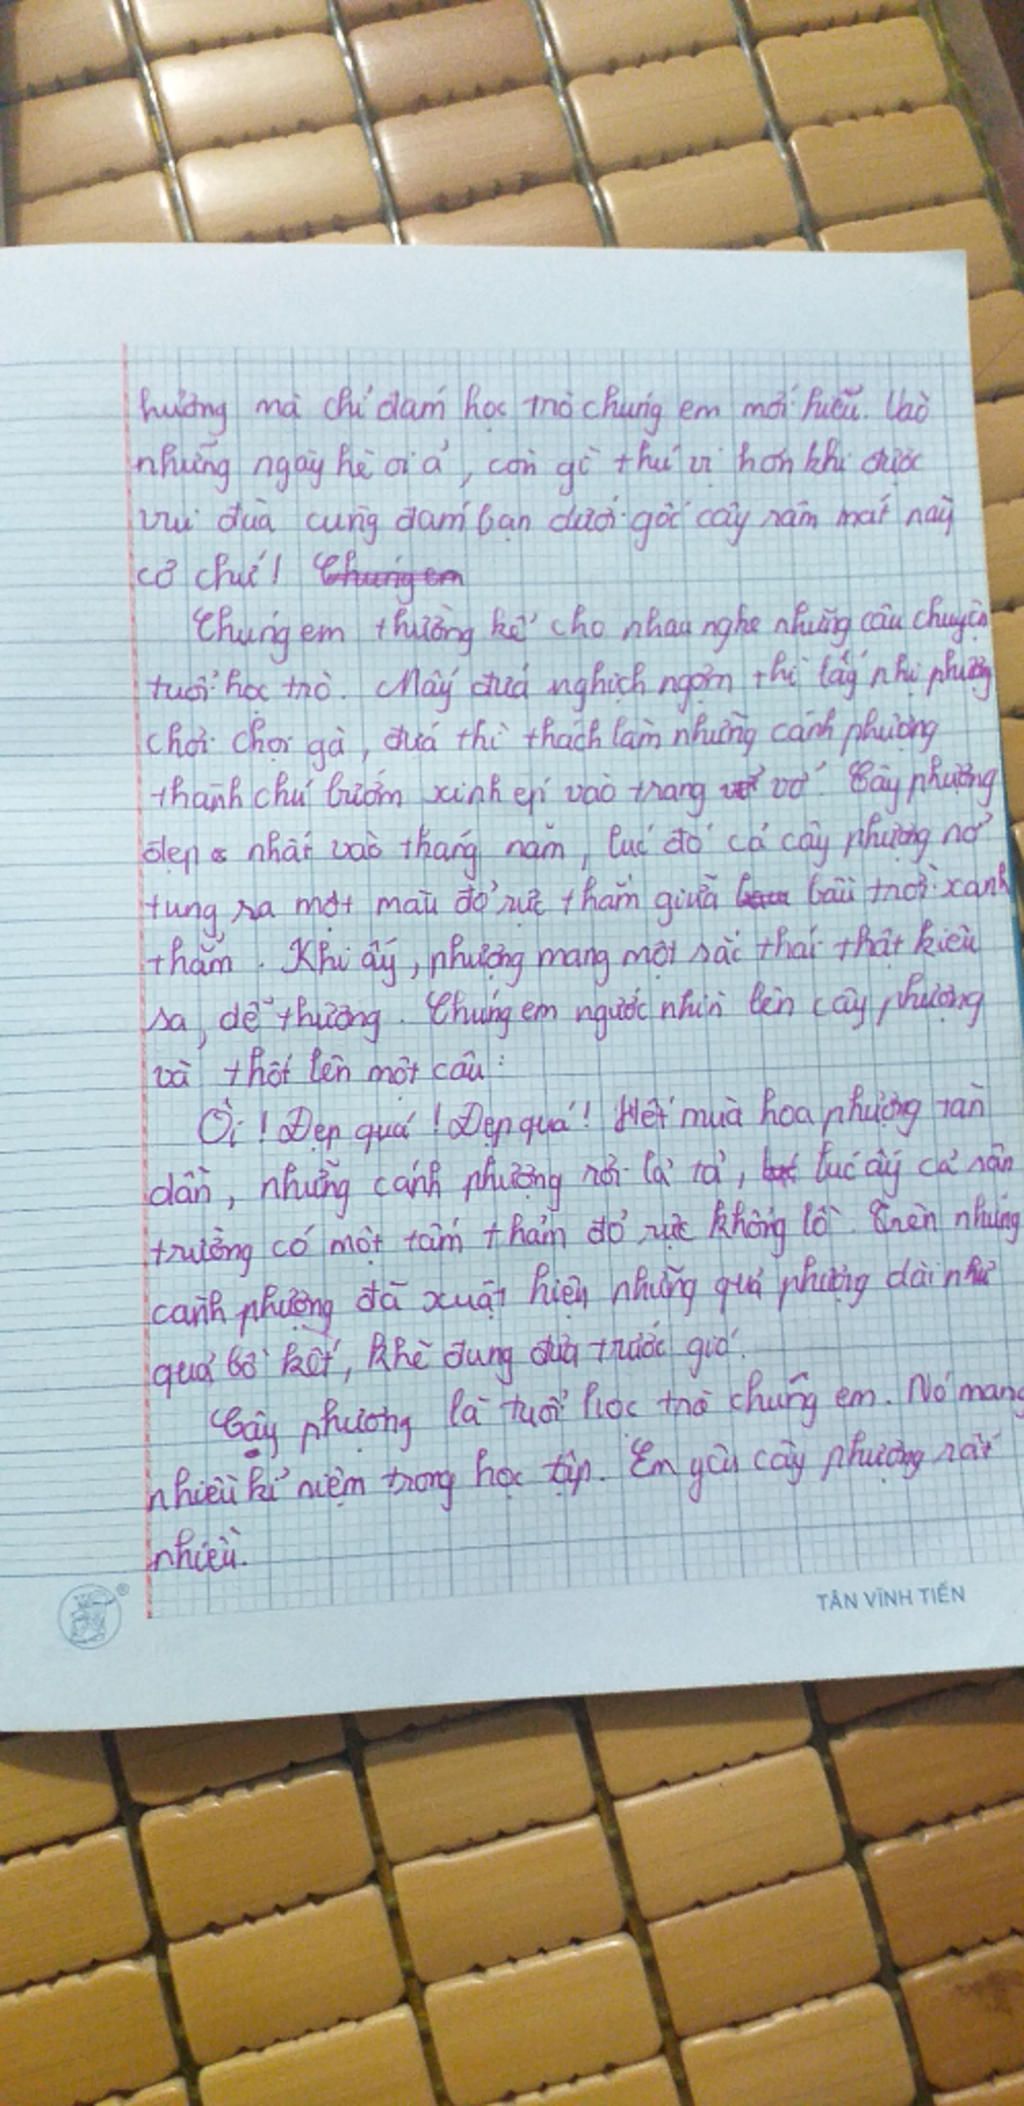 hương mà chỉ đám học trò chúng em mới hiểu. Vào
những ngày hè oi ả, còn gì thú vị hơn khi được
vui đùa cùng đám bạn dưới gốc cây râm mát này
cơ chứ! Chúng em
Chúng em thường kể cho nhau nghe những câu chuyện
tuổi học trò. Mấy đứa nghịch ngợm thì lấy nhị phượng
chơi chọi gà, đứa thì thách làm những cánh phượng
thành chú bướm xinh ép vào trang vở. Cây phượng
đẹp nhất vào tháng năm, lúc đó cả cây phượng nở
tung ra một màu đỏ rực thắm giữa bầu trời xanh
thẳm. Khi ấy, phượng mang một sắc thái thật kiêu
sa, dễ thương. Chúng em ngước nhìn lên cây phượng
và thốt lên một câu:
Ôi! Đẹp quá! Đẹp quá! Hết mùa hoa phượng tàn
dần, những cánh phượng rơi lả tả, lúc ấy cả sân
trường có một tấm thảm đỏ rực khổng lồ. Trên những
cành phượng đã xuất hiện những quả phượng dài như
quả bồ kết, khẽ đung đưa trước gió.
Cây phượng là tuổi học trò chúng em. Nó mang
nhiều kỉ niệm trong học tập. Em yêu cây phượng rất
nhiều.
TÂN VĨNH TIẾN